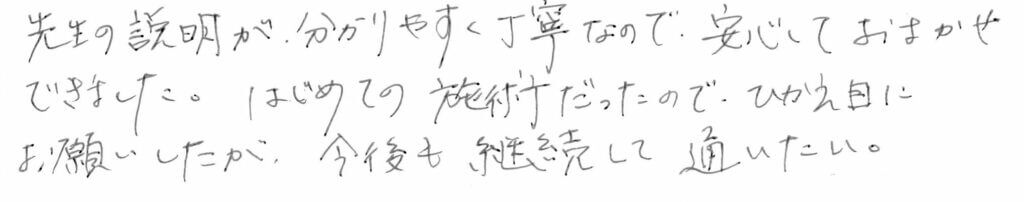 先生の説明が、分かりやすく丁寧なので、安心しておまかせ
できました。はじめての施術だったので、ひかえ目に
お願いしたが、今後も継続して通いたい。